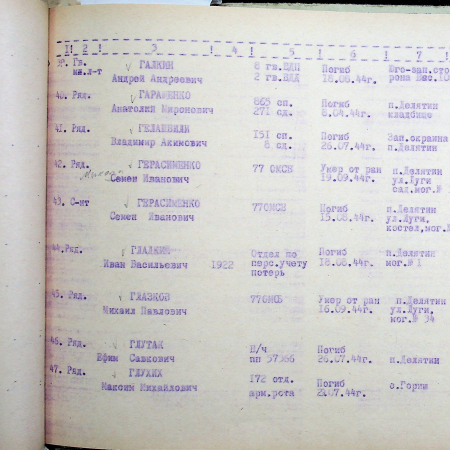 1! 2 ! 3 ! 4 ! 5 ! 6 ! 7 !
Гв. ГАЛКИН 8 гв.ВДП Погиб Юго-зап.сто
мл.л-т Андрей Андреевич 2 гв.ВДД 18.08.44г. рона Выс.
40. Ряд. ГАРАМЕНКО 865 сп. Погиб п.Делятин
Анатолий Миронович 271 сд. 8.04.44г. кладбище
41. Ряд. ГЕЛАШВИЛИ 151 сп. Погиб Зап.окраина
Владимир Акимович 8 сд. 26.07.44г. п.Делятин
42. Ряд. ГЕРАСИМЕНКО 77 ОМСБ Умер от ран п.Делятин
Семен Иванович 19.09.44г. ул.Луги
сад,мог.№
43. С-нт ГЕРАСИМЕНКО 77ОМСБ Погиб п.Делятин
Семен Иванович 15.08.44г. ул.Луги,
костел,мог.№
44.Ряд. ГЛАДКИЙ Отдел по Погиб п.Делятин
Иван Васильевич 1922 перс.учету 18.08.44г. мог.№ 1
потерь
45. Ряд. ГЛАЗКОВ 77ОМСБ Умер от ран п.Делятин
Михаил Павлович 16.09.44г. ул.Луги,
мог.№ 34
46. Ряд. ГЛУТАК В/ч Погиб
Ефим Савкович пп 57366 26.07.44г. п.Делятин
47. Ряд. ГЛУХИХ 172 отд. Погиб
Максим Михайлович арм.рота 27.07.44г. с.Горин